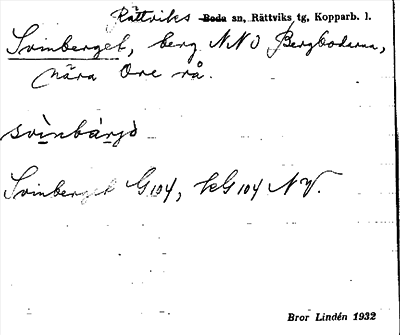 Rättviks Boda sn, Rättviks tg, Kopparb. l.
Svinberget, berg NNO Bergbodarna,
nära Ore rå.
svìnbàrjə
Svinberget G104, kG104 NV.
Bror Lindén 1932